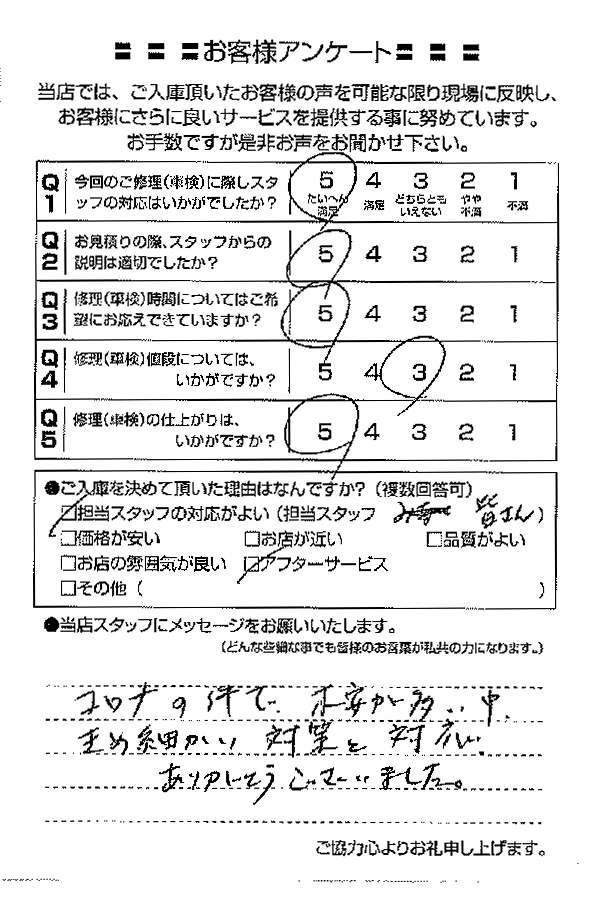 〓 〓 〓お客様アンケート〓 〓 〓
当店では、ご入庫頂いたお客様の声を可能な限り現場に反映し、
お客様にさらに良いサービスを提供する事に努めています。
お手数ですが是非お声をお聞かせ下さい。
Q1 今回のご修理(車検)に際しスタッフの対応はいかがでしたか? 5 4 3 2 1
たいへん満足 満足 どちらともいえない やや不満 不満
Q2 お見積りの際、スタッフからの説明は適切でしたか? 5 4 3 2 1
Q3 修理(車検)時間についてはご希望にお応えできていますか? 5 4 3 2 1
Q4 修理(車検)値段については、いかがですか? 5 4 3 2 1
Q5 修理(車検)の仕上がりは、いかがですか? 5 4 3 2 1
●ご入庫を決めて頂いた理由はなんですか?(複数回答可)
□担当スタッフの対応がよい(担当スタッフ 皆さん)
□価格が安い □お店が近い □品質がよい
□お店の雰囲気が良い □アフターサービス
□その他( )
●当店スタッフにメッセージをお願いいたします。
(どんな些細な事でも皆様のお言葉が私共の力になります。)
コロナの件で 不安が多い中、
きめ細かい 対策と 対応
ありがとうございました。
ご協力心よりお礼申し上げます。